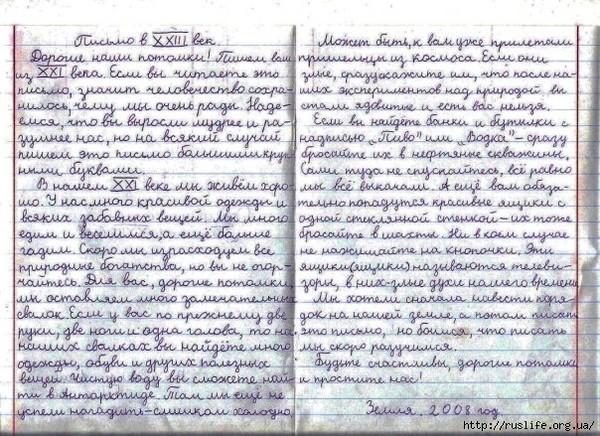 Письмо в XXIII век
Дорогие наши потомки! Пишем вам
из XXI века. Если вы читаете это
письмо, значит человечество сохра-
нилось, чему мы очень рады. Наде-
емся, что вы выросли мудрее и ра-
зумнее нас, но на всякий случай
пишем это письмо большими круп-
ными буквами.
В нашем XXI веке мы живём хоро-
шо. У нас много красивой одежды и
всяких забавных вещей. Мы много
едим и веселимся, а ещё больше
гадим. Скоро мы израсходуем все
природные богатства, но вы не огор-
чайтесь. Для вас, дорогие потомки,
мы оставляем много замечательных
свалок. Если у вас по прежнему две
руки, две ноги и одна голова, то на
наших свалках вы найдёте много
одежды, обуви и других полезных
вещей. Чистую воду вы сможете най-
ти в Антарктиде. Там мы ещё не
успели нагадить – слишком холодно
Может быть, к вам уже прилетали
пришельцы из космоса. Если они
злые, сразу скажите им, что после на-
ших экспериментов над природой вы
стали ядовитые и есть вас нельзя.
Если вы найдёте банки и бутылки с
надписью „Пиво" или „Водка" – сразу
бросайте их в нефтяные скважины.
Сами туда не спускайтесь, всё равно
мы всё выкачали. А ещё вам обяза-
тельно попадутся красивые ящики с
одной стеклянной стенкой – их тоже
бросайте в шахты. Ни в коем случае
не нажимайте на кнопочки. Эти
ящики (ящики) называются телеви-
зоры, в них – злые духи нашего времени
Мы хотели сначала навести поря-
док на нашей земле, а потом писать
это письмо, но боимся, что писать
мы скоро разучимся.
Будьте счастливы, дорогие потомки
и простите нас!
Земля, 2008 год
http://ruslife.org.ua/